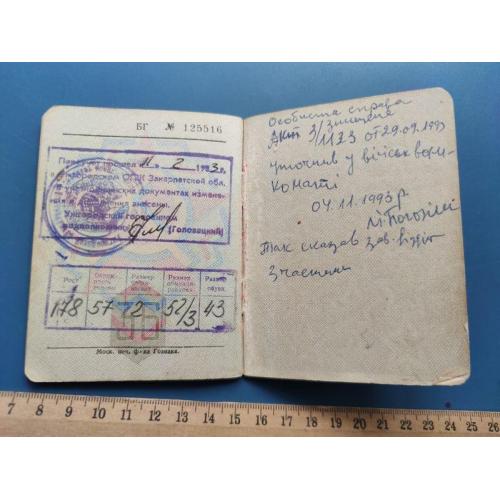 БГ № 125516
11 2 1983 г.
Ужгородском ОГВК Закарпатской обл.
в документах изменения
внесены.
Ужгородский горвоенком
(Головацкий)
Рост
Размер
Размер
Размер
178 57 72 52/3 43
Моск. печ. ф-ка Гознака.
Особиста справа
знищена
Акт 3/1123 от 29.09.1993
уточнив у військ воєн-
коматі
04.11.1993 р
Так сказав зав. відділ
з частини
7 8 9 10 11 12 13 14 15 16 17 18 19 20 21 22 23 24 25 26